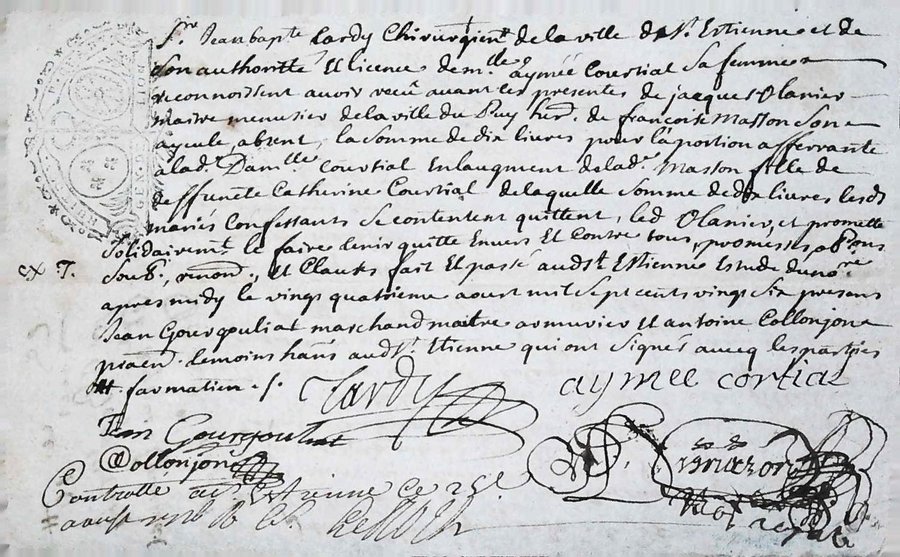 Sr. Jean bapte. tardy Chirurgient. de la ville de St. Estienne et de
son authoritté et licence demlle aymée Courtial sa femme
reconnoissent avoir receu avant ces presentes de jacques Olanier
maitre menusier de la ville du Puy de francoise Masson son
ayeule, absent, la somme de dix livres pour la portion afferrante
a lade. Damlle Courtial en laugment de lade. Masson fille de
deffuncte Catherine Courtial de laquelle somme de dix livres lesd
mariés Confessants se contentent quittent, led Olanier, et promette
solidairemt. le faire tenir quitte Envers et Contre tous, promesses,
soub., renond., et Clauses fait et passé aud St. Estienne Estude du nore
apres midy le vingt quatrieme aoust mil sept cents vingt six presens
Jean Gourgouliat marchand maitre armurier et antoine Collonjon
temoins hans aud St. Etienne qui ont signés avecq les parties
Tardy aymée cortial
Jean Gourgouliat
Collonjon
Controllé a St. Estienne ce
aoust